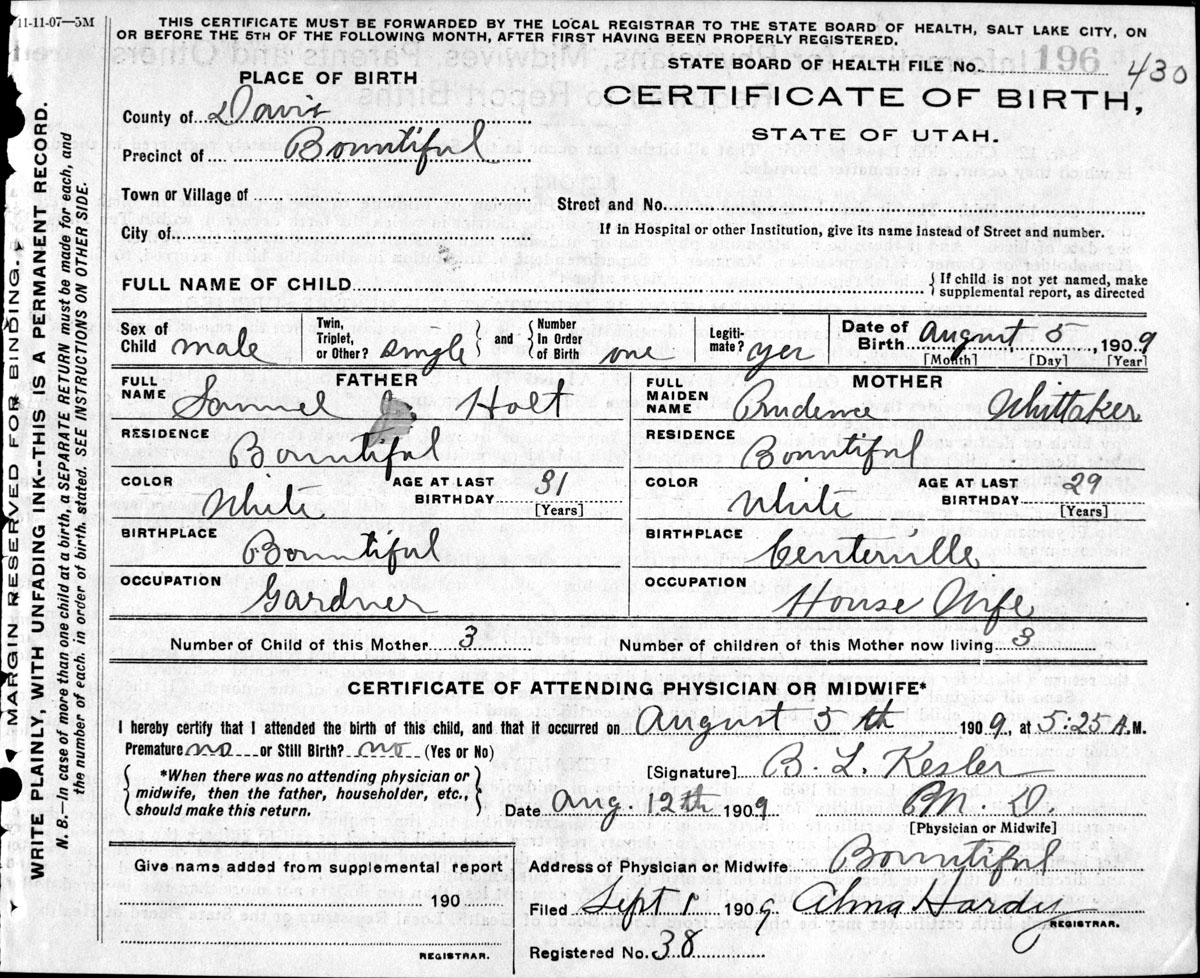 11-11-07—5M
THIS CERTIFICATE MUST BE FORWARDED BY THE LOCAL REGISTRAR TO THE STATE BOARD OF HEALTH, SALT LAKE CITY, ON
OR BEFORE THE 5TH OF THE FOLLOWING MONTH, AFTER FIRST HAVING BEEN PROPERLY REGISTERED.
STATE BOARD OF HEALTH FILE No. 196 430
PLACE OF BIRTH
CERTIFICATE OF BIRTH,
STATE OF UTAH.
County of Davis
Precinct of Bountiful
Town or Village of
Street and No.
City of
If in Hospital or other Institution, give its name instead of Street and number.
FULL NAME OF CHILD
{If child is not yet named, make
supplemental report, as directed
Sex of Child male
Twin, Triplet, or Other? single
and
Number In Order of Birth one
Legitimate? yes
Date of Birth August 5, 1909
[Month] [Day] [Year]
FATHER
FULL NAME Samuel Holt
RESIDENCE Bountiful
COLOR White
AGE AT LAST BIRTHDAY 31
[Years]
BIRTHPLACE Bountiful
OCCUPATION Gardner
MOTHER
FULL MAIDEN NAME Prudence Whittaker
RESIDENCE Bountiful
COLOR White
AGE AT LAST BIRTHDAY 29
[Years]
BIRTHPLACE Centerville
OCCUPATION House Wife
Number of Child of this Mother 3
Number of children of this Mother now living 3
CERTIFICATE OF ATTENDING PHYSICIAN OR MIDWIFE*
I hereby certify that I attended the birth of this child, and that it occurred on August 5th 1909, at 5:25 A.M.
Premature no or Still Birth? no (Yes or No)
*When there was no attending physician or
midwife, then the father, householder, etc.,
should make this return.
[Signature] B. L. Kesler
Date Aug. 12th 1909 M. D
[Physician or Midwife]
Give name added from supplemental report
190
REGISTRAR.
Address of Physician or Midwife Bountiful
Filed Sept 1 1909 Alma Hardy
REGISTRAR.
Registered No. 38
MARGIN RESERVED FOR BINDING.
WRITE PLAINLY, WITH UNFADING INK--THIS IS A PERMANENT RECORD.
N. B.—In case of more than one child at a birth, a SEPARATE RETURN must be made for each, and
the number of each, in order of birth, stated. SEE INSTRUCTIONS ON OTHER SIDE.